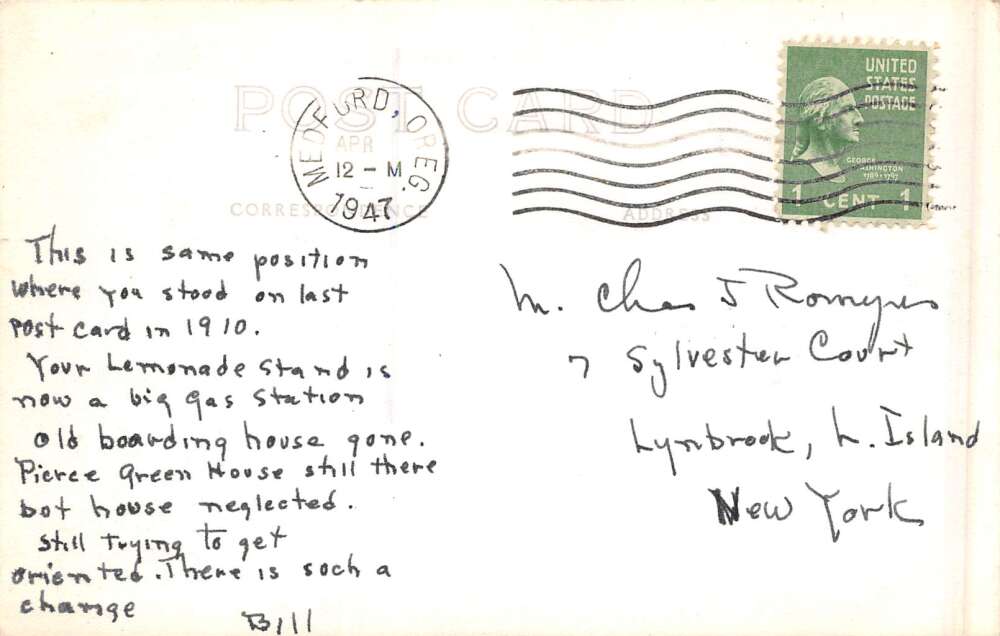 POST CARD
MEDFORD, OREG.
APR
12 - M
1947
CORRESPONDENCE
ADDRESS
UNITED
STATES
POSTAGE
GEORGE
WASHINGTON
1789-1797
1 CENT 1
This is same position
where you stood on last
post card in 1910.
Your Lemonade Stand is
now a big gas station
old boarding house gone.
Pierce Green House still there
but house neglected.
Still trying to get
oriented. There is such a
change
Bill
M. Chas J
7 Sylvester Court
Lynbrook, L. Island
New York